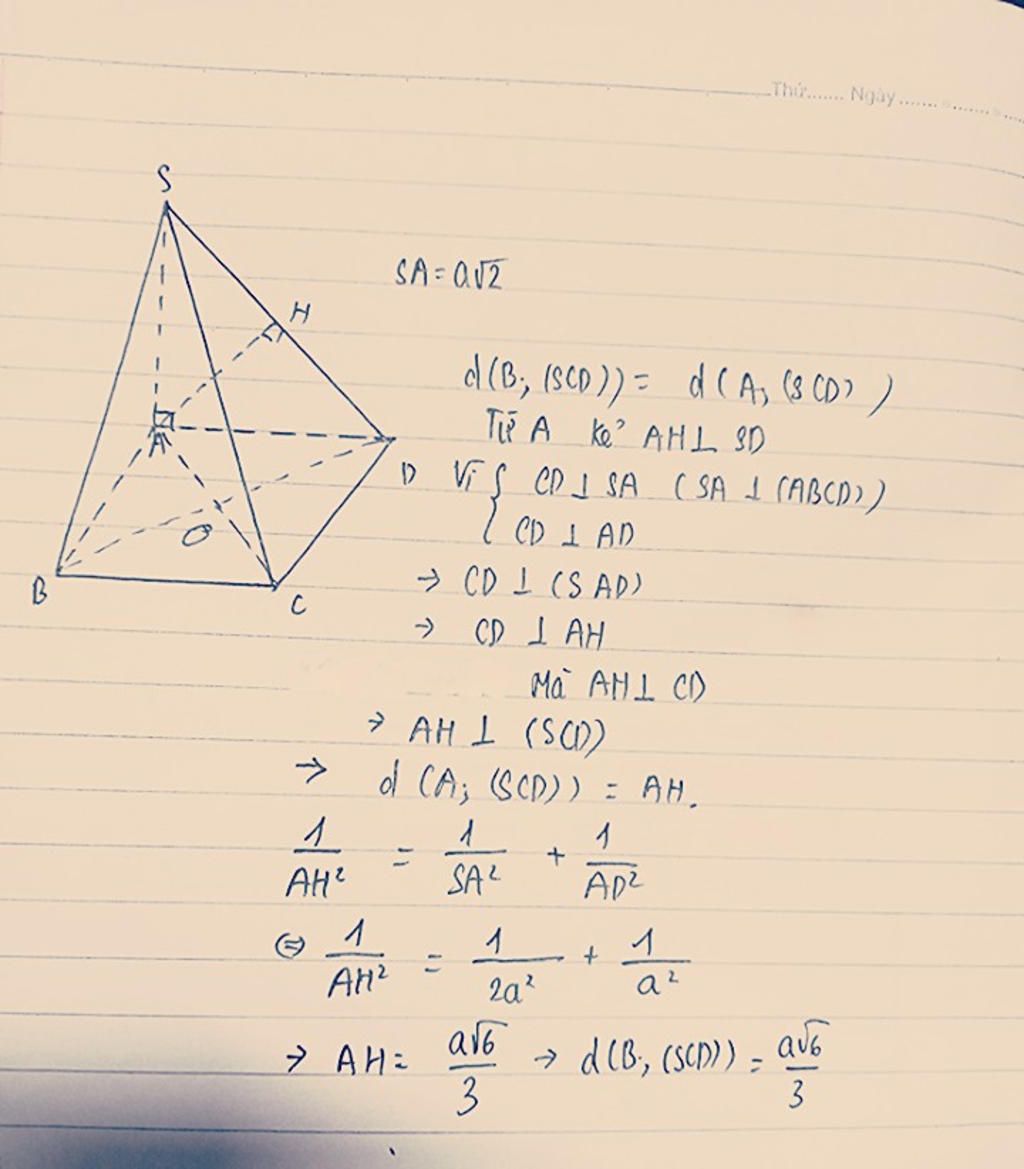 Thứ....... Ngày.......
S
SA = a√2
H
d(B; (SCD)) = d(A; (SCD))
Từ A kẻ AH ⊥ SD
A
D
Vì { CD ⊥ SA (SA ⊥ (ABCD))
CD ⊥ AD
O
B
C
→ CD ⊥ (SAD)
→ CD ⊥ AH
Mà AH ⊥ CD
→ AH ⊥ (SCD)
→ d(A; (SCD)) = AH.
1/AH² = 1/SA² + 1/AD²
⇔ 1/AH² = 1/2a² + 1/a²
→ AH = a√6/3 → d(B; (SCD)) = a√6/3